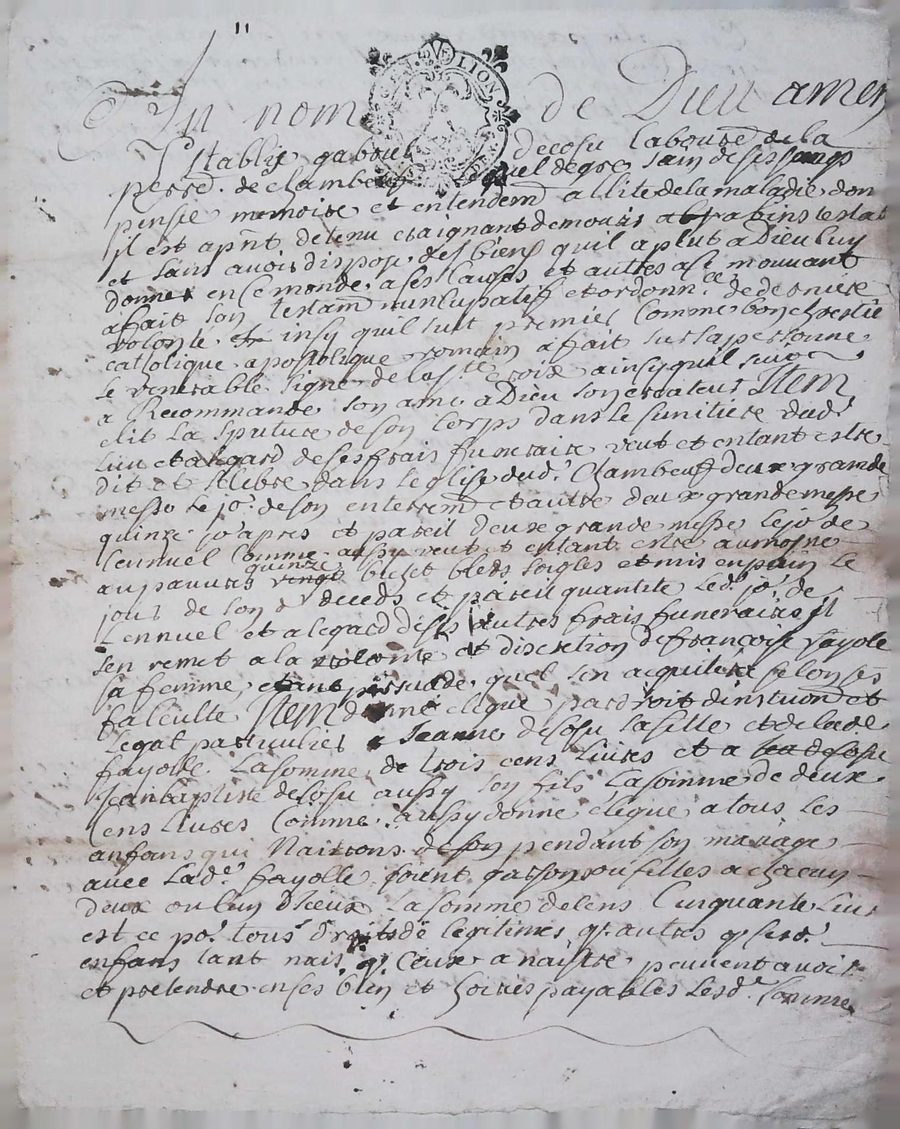 GEN. LION
Au nom de Dieu amen
Establis gaboul decosu laboure de la
perre. de chambeuf lequel de gre sain de ses sangs
pensée memoire et entendem allité de la maladie don
il est apnt detenu craignant de mourir abrabins testat
et sans avoir dispose des biens quil a plut a Dieu luy
donner en ce monde a ses causes et autres a ce mouvant
a fait son testam nuncupatif et ordonnce de derniere
volonte insy quil suit premier Comme bon chrestie
catolique apostolique romain a fait sur sa personne
le venerable signe de la ste croix ainsy quil suit
a Recommandé son ame a Dieu son createur Item
elit la sputure de son corps dans le simitiere dud
lieu et a legard de ses frais funeraire veut et entant estre
dit et selebre dans leglise dud. Chambeuf deux grande
messe le jo. de son enterrem et autre deux grande messe
quinze jo apres et pareil deux grande messe le jo de
lennuel Comme aussy veut et entant estre aumosne
aux pauvres quinze bichet bleds soigles et mis en pain le
jour de son deceds et pareil quantite led. jo. de
Lennuel et a legard de ses autres frais funeraires il
sen remet a la volonte et discretion de françoise fayole
sa femme etant persuade quel sen aquitera selon ses
faculté Item donne legue par droit dinstituon et
legat particulier a Jeanne decosu sa fille et de lade
fayolle La somme de trois cens livres et a
Jean baptiste decosu aussy son fils La somme de deux
Cens livres Comme aussy donne legue a tous les
anfans qui Naitrons de son pendant son mariage
avec Lade fayolle soient garson ou filles a chacun
deux ou lun Dieux La somme de Cens Cinquante Livr
est ce po. tous droits de legitimes q. autres q. lesd.
enfans tant nais q. Ceux a naistre peuvent avoir
et pretendre en ses bien et hoires payables Lesd. somme